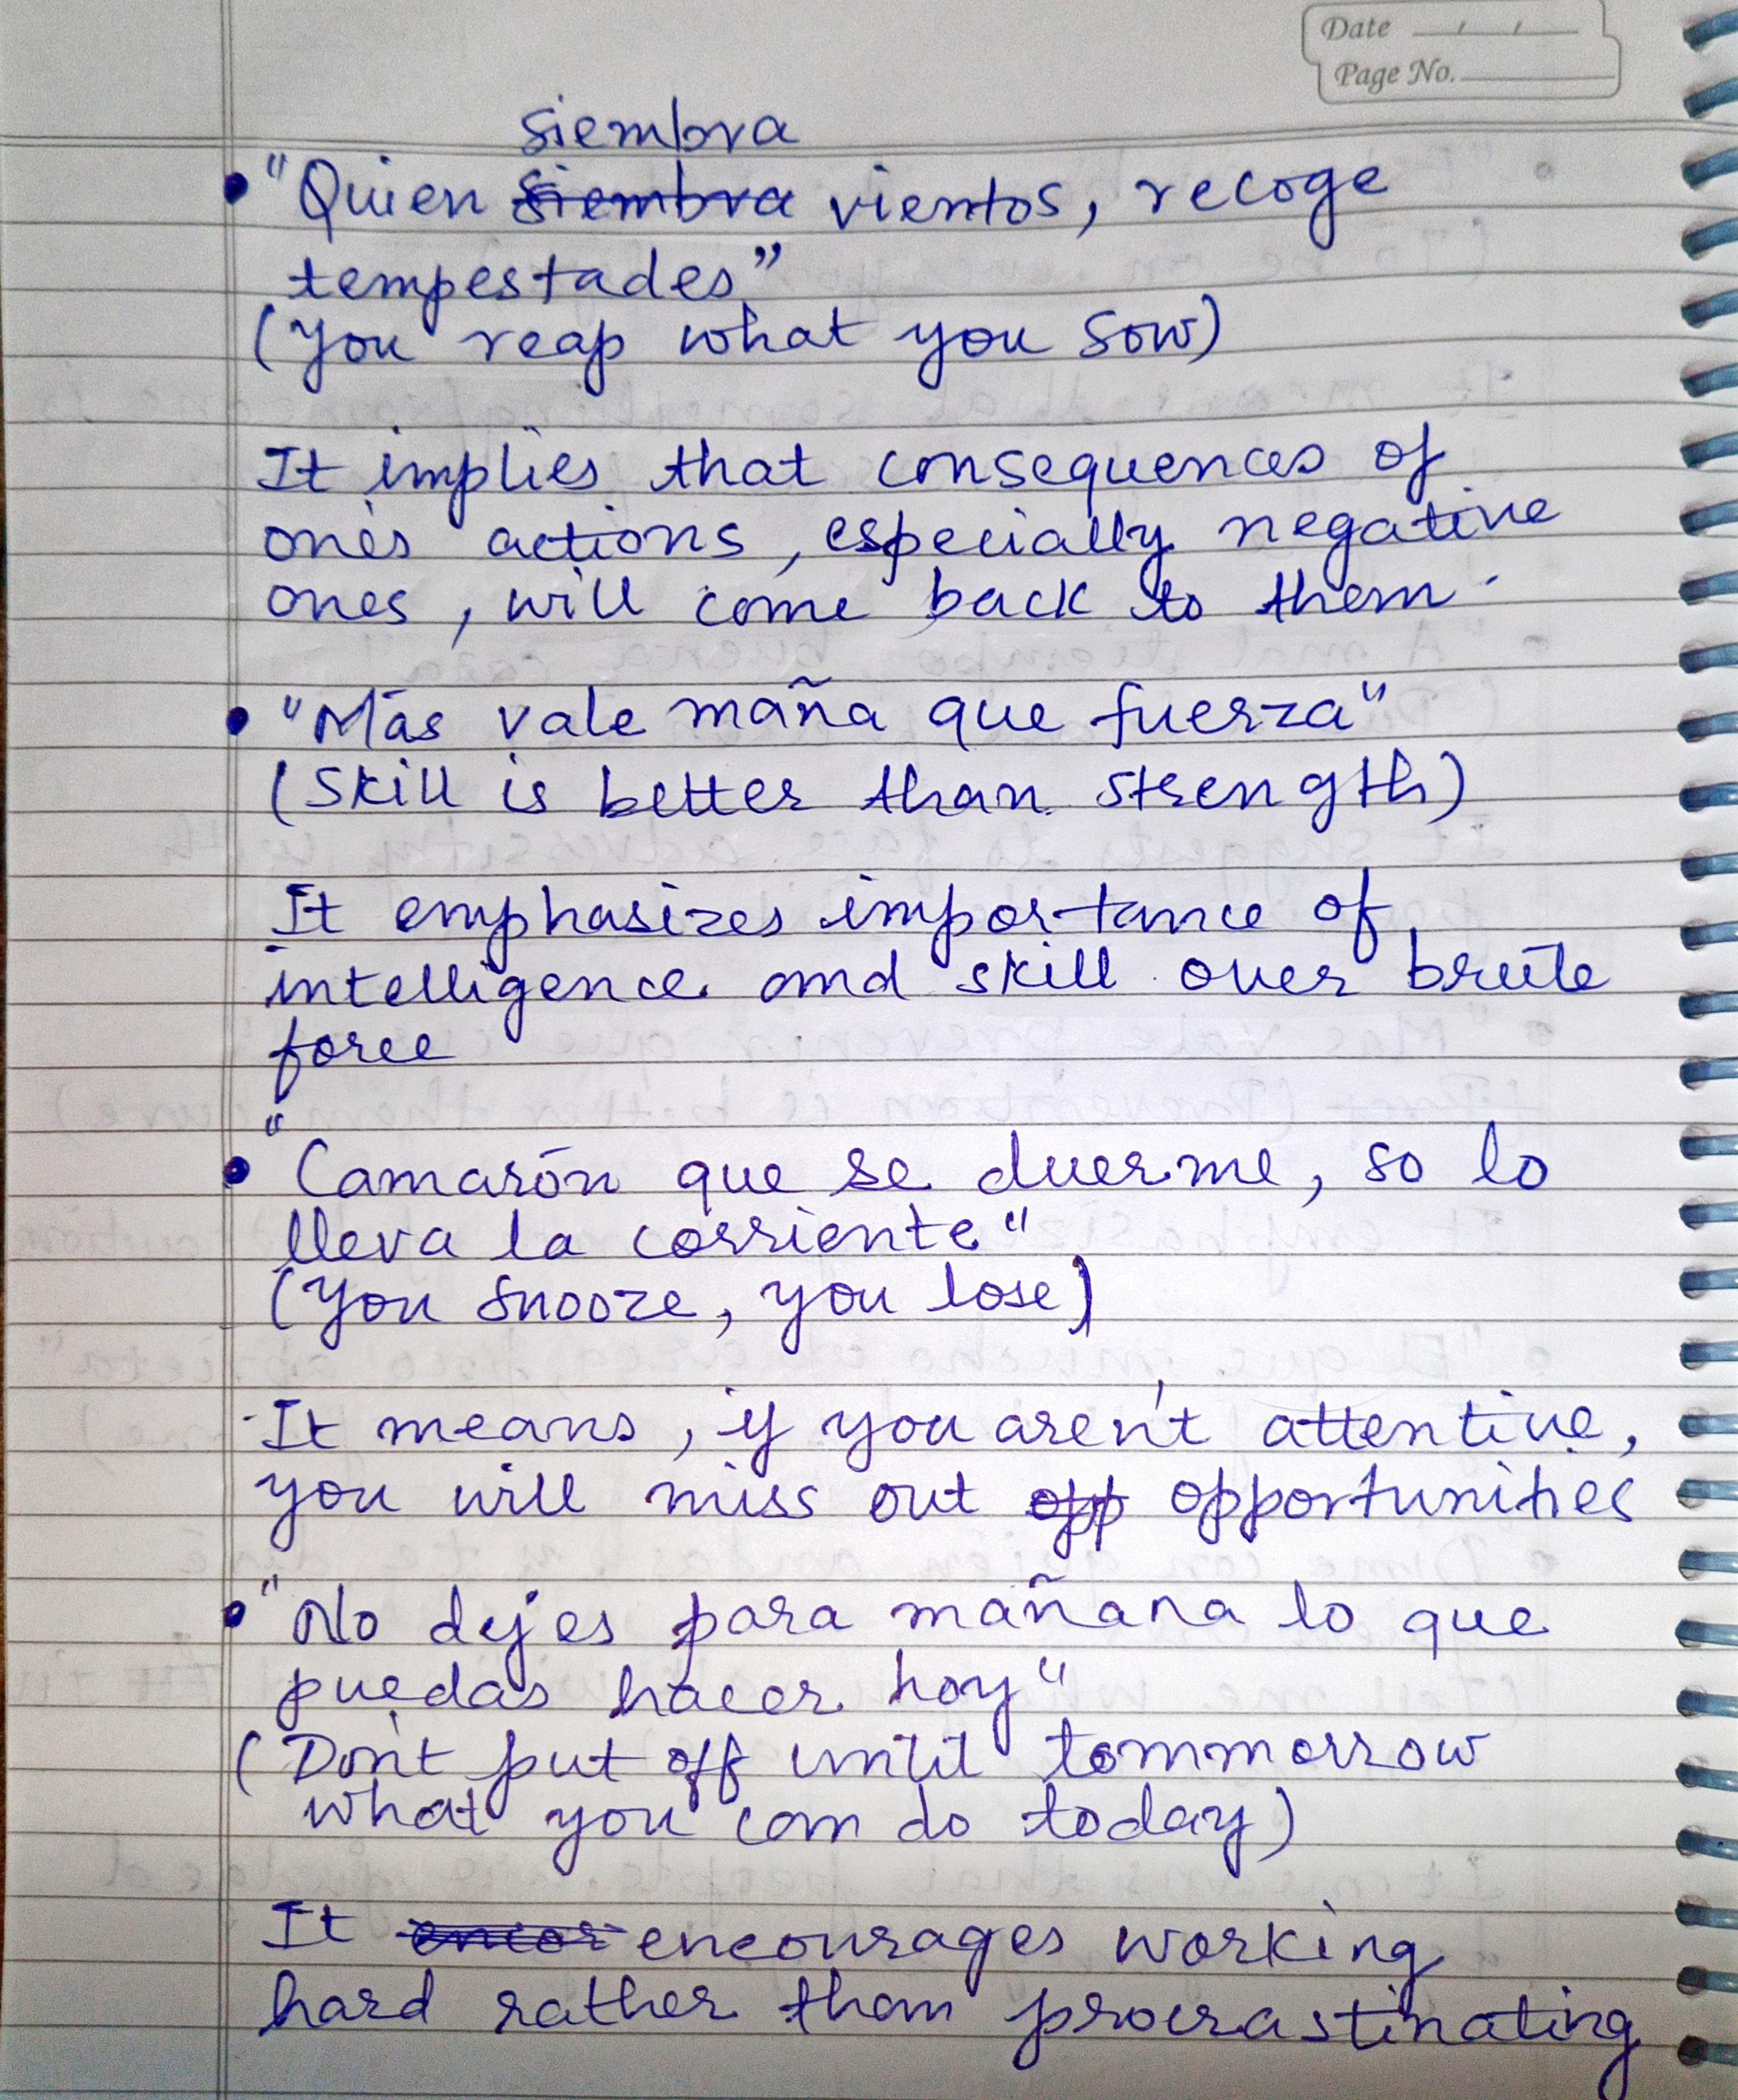 Date / /
Page No.
siembra
• "Quien siembra vientos, recoge
tempestades"
(You reap what you sow)
It implies that consequences of
one's actions, especially negative
ones, will come back to them.
• "Más vale maña que fuerza"
(Skill is better than strength)
It emphasizes importance of
intelligence and skill over brute
force
• "Camarón que se duerme, so lo
lleva la corriente"
(You snooze, you lose)
It means, if you aren't attentive,
you will miss out opp opportunities
• "No dejes para mañana lo que
puedas hacer hoy"
(Don't put off until tommorrow
what you can do today)
It encor encourages working
hard rather than procrastinating